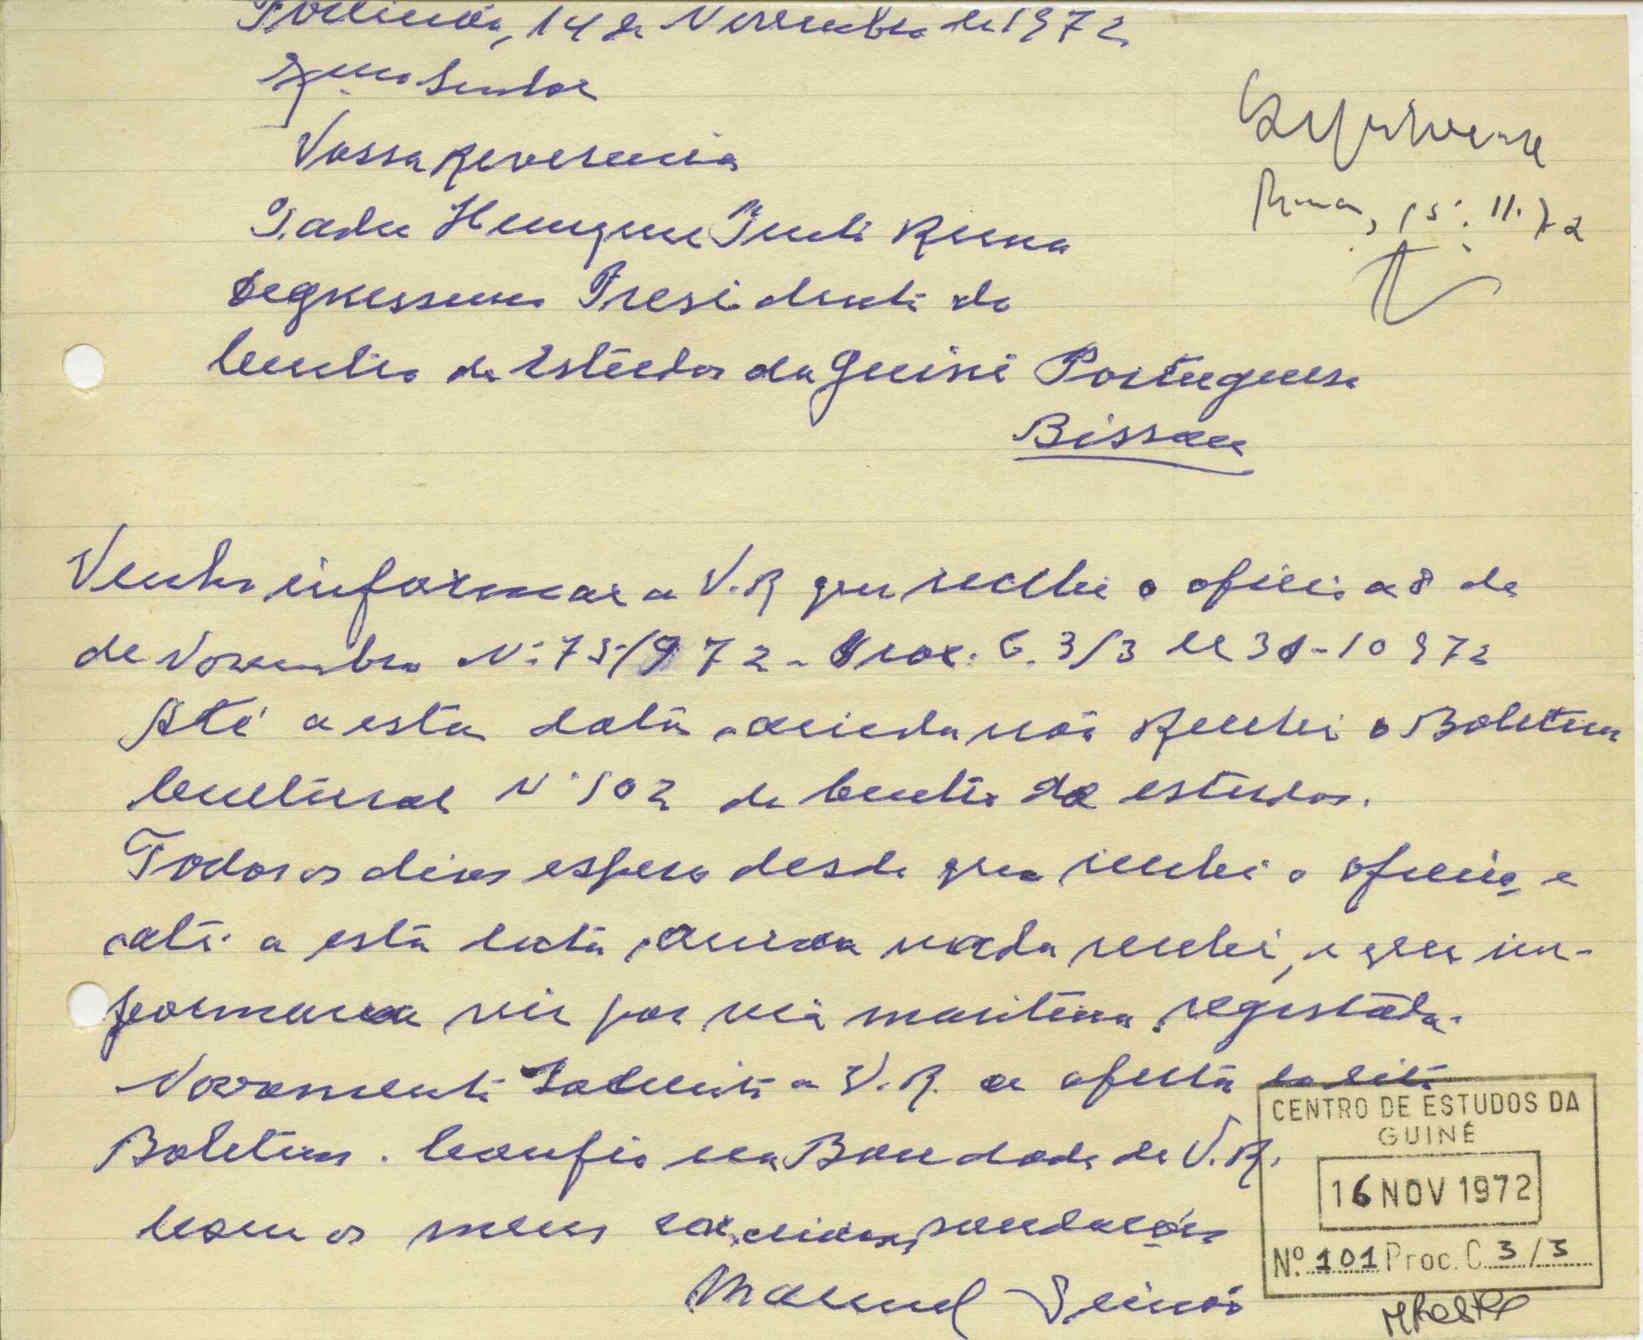 14 de Novembro de 1972
Exmo Senhor
Vossa Reverencia
Padre Henrique Pinto Rema
Presidente do
Centro de Estudos da Guiné Portuguesa
Bissau
Bissau, 15.11.72
Venho informar a V.R que recebi o oficio a 8 de
de Novembro Nº 75/972 - Proc. C. 3/3 de 31-10 972
Até a esta data ainda não Recebi o Boletim
Cultural Nº 102 do Centro de estudos.
Todos os dias espero desde que recebi o oficio e
até a esta data ainda nada recebi, e que in-
formava vir por via maritima registada.
Novamente Solicito a V.R. a oferta do dito
Boletim. Confio na Bondade de V.R.
Com os meus saudações
Manuel Simão
CENTRO DE ESTUDOS DA
GUINÉ
16 NOV 1972
Nº 101 Proc. C 3/3